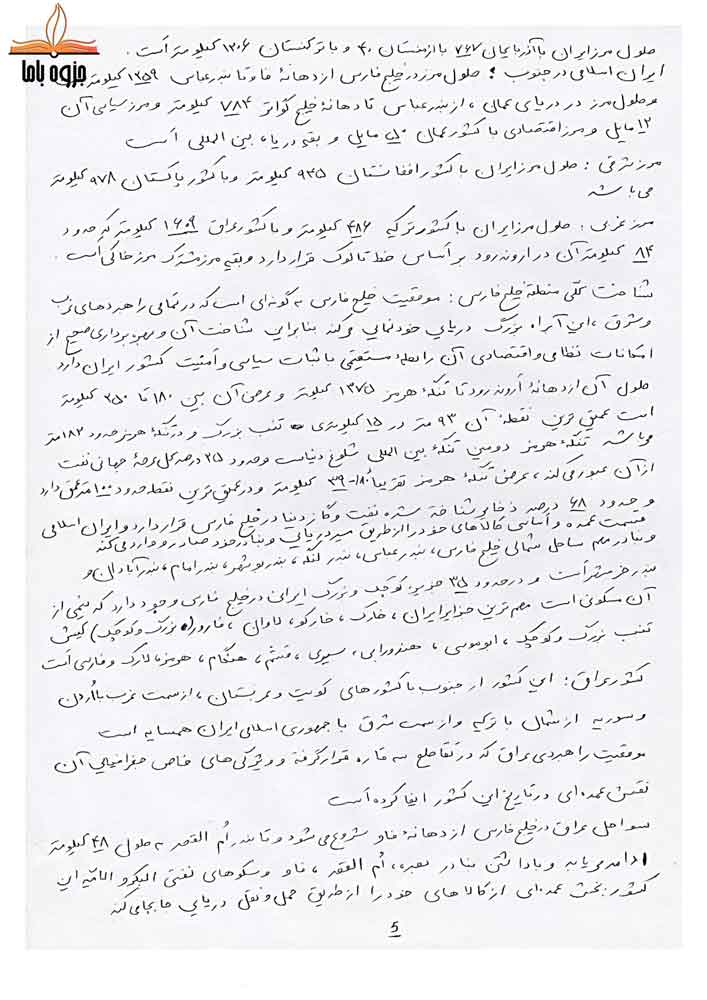 جزوه باما
طول مرز ایران با آذربایجان ۷۶۷ با ارمنستان ۴۰ و با ترکمنستان ۱۲۰۶ کیلومتر است .
ایران اسلامی در جنوب ؛ طول مرز در خلیج فارس از دهانهٔ فاو تا بندرعباس ۱۲۵۹ کیلومتر
و طول مرز در دریای عمان ، از بندرعباس تا دهانهٔ خلیج گواتر ۷۸۴ کیلومتر و مرز سیاسی آن
۱۲ مایل و مرز اقتصادی با کشور عمان ۵۰ مایل و بقیه دریا، بین المللی است
مرز شرقی : طول مرز ایران با کشور افغانستان ۹۴۵ کیلومتر و با کشور پاکستان ۹۷۸ کیلومتر
می باشد
مرز غربی : طول مرز ایران با کشور ترکیه ۴۸۶ کیلومتر و با کشور عراق ۱۶۰۹ کیلومتر که حدود
۸۴ کیلومتر آن در اروند رود بر اساس خط تالوگ قرار دارد و بقیه مرز مشترک مرز خاکی است .
شناخت کلی منطقه خلیج فارس : موقعیت خلیج فارس به گونه ای است که در تمامی راهبردهای غرب
و شرق ، این آبراه بزرگ دریایی خودنمایی می کند بنابراین شناخت آن و بهره برداری صحیح از
امکانات نظامی و اقتصادی آن رابطهٔ مستقیمی با ثبات سیاسی و امنیت کشور ایران دارد
طول آن از دهانهٔ اروند رود تا تنگهٔ هرمز ۱۳۷۵ کیلومتر و عرض آن بین ۱۸۰ تا ۳۵۰ کیلومتر
است عمیق ترین نقطهٔ آن ۹۳ متر در ۱۵ کیلومتری تنب بزرگ و در تنگهٔ هرمز حدود ۱۸۲ متر
می باشد تنگهٔ هرمز دومین تنگهٔ بین المللی شلوغ دنیاست و حدود ۲۵ درصد کل عرضهٔ جهانی نفت
از آن عبور می کند ، عرض تنگهٔ هرمز تقریباً کیلومتر و در عمیق ترین نقطه حدود ۱۰۰ متر عمق دارد
و حدود ۶۸ درصد ذخایر شناخته شده نفت و گاز دنیا در خلیج فارس قرار دارد و ایران اسلامی
قسمت عمده و اساسی کالاهای خود را از طریق مسیر دریایی و بنادر خود صادر و وارد می کند
و بنادر مهم ساحل شمالی خلیج فارس ، بندرعباس ، بندر لنگه ، بندر بوشهر ، بندر امام ، بندر آبادان و
بندر خرمشهر است و در حدود ۳۵ جزیره کوچک و بزرگ ایرانی در خلیج فارس وجود دارد که نیمی از
آن مسکونی است مهم ترین جزایر ایران ، خارک ، خارکو ، لاوان ، فارور (بزرگ و کوچک) کیش
تنب بزرگ و کوچک ، ابوموسی ، هندورابی ، سیری ، قشم ، هنگام ، هرمز ، لارک و فارسی است
کشور عراق : این کشور از جنوب با کشورهای کویت و عربستان ، از سمت غرب با اُردن
و سوریه از شمال با ترکیه و از سمت شرق با جمهوری اسلامی ایران همسایه است
موقعیت راهبردی عراق که در تقاطع سه قاره قرار گرفته و ویژگی های خاص جغرافیایی آن
نقش عمده ای در تاریخ این کشور ایفا کرده است
سواحل عراق در خلیج فارس از دهانهٔ فاو شروع می شود و تا بندر اُم القصر به طول ۴۸ کیلومتر
ادامه می یابد و با داشتن بنادر بصره ، اُم القصر ، فاو و سکوهای نفتی البکر و الامیّه این
کشور بخش عمده ای از کالاهای خود را از طریق حمل و نقل دریایی جابجا می کند
5